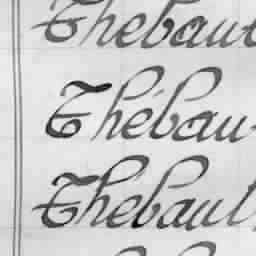 Thebaut
Thébau
Thebault